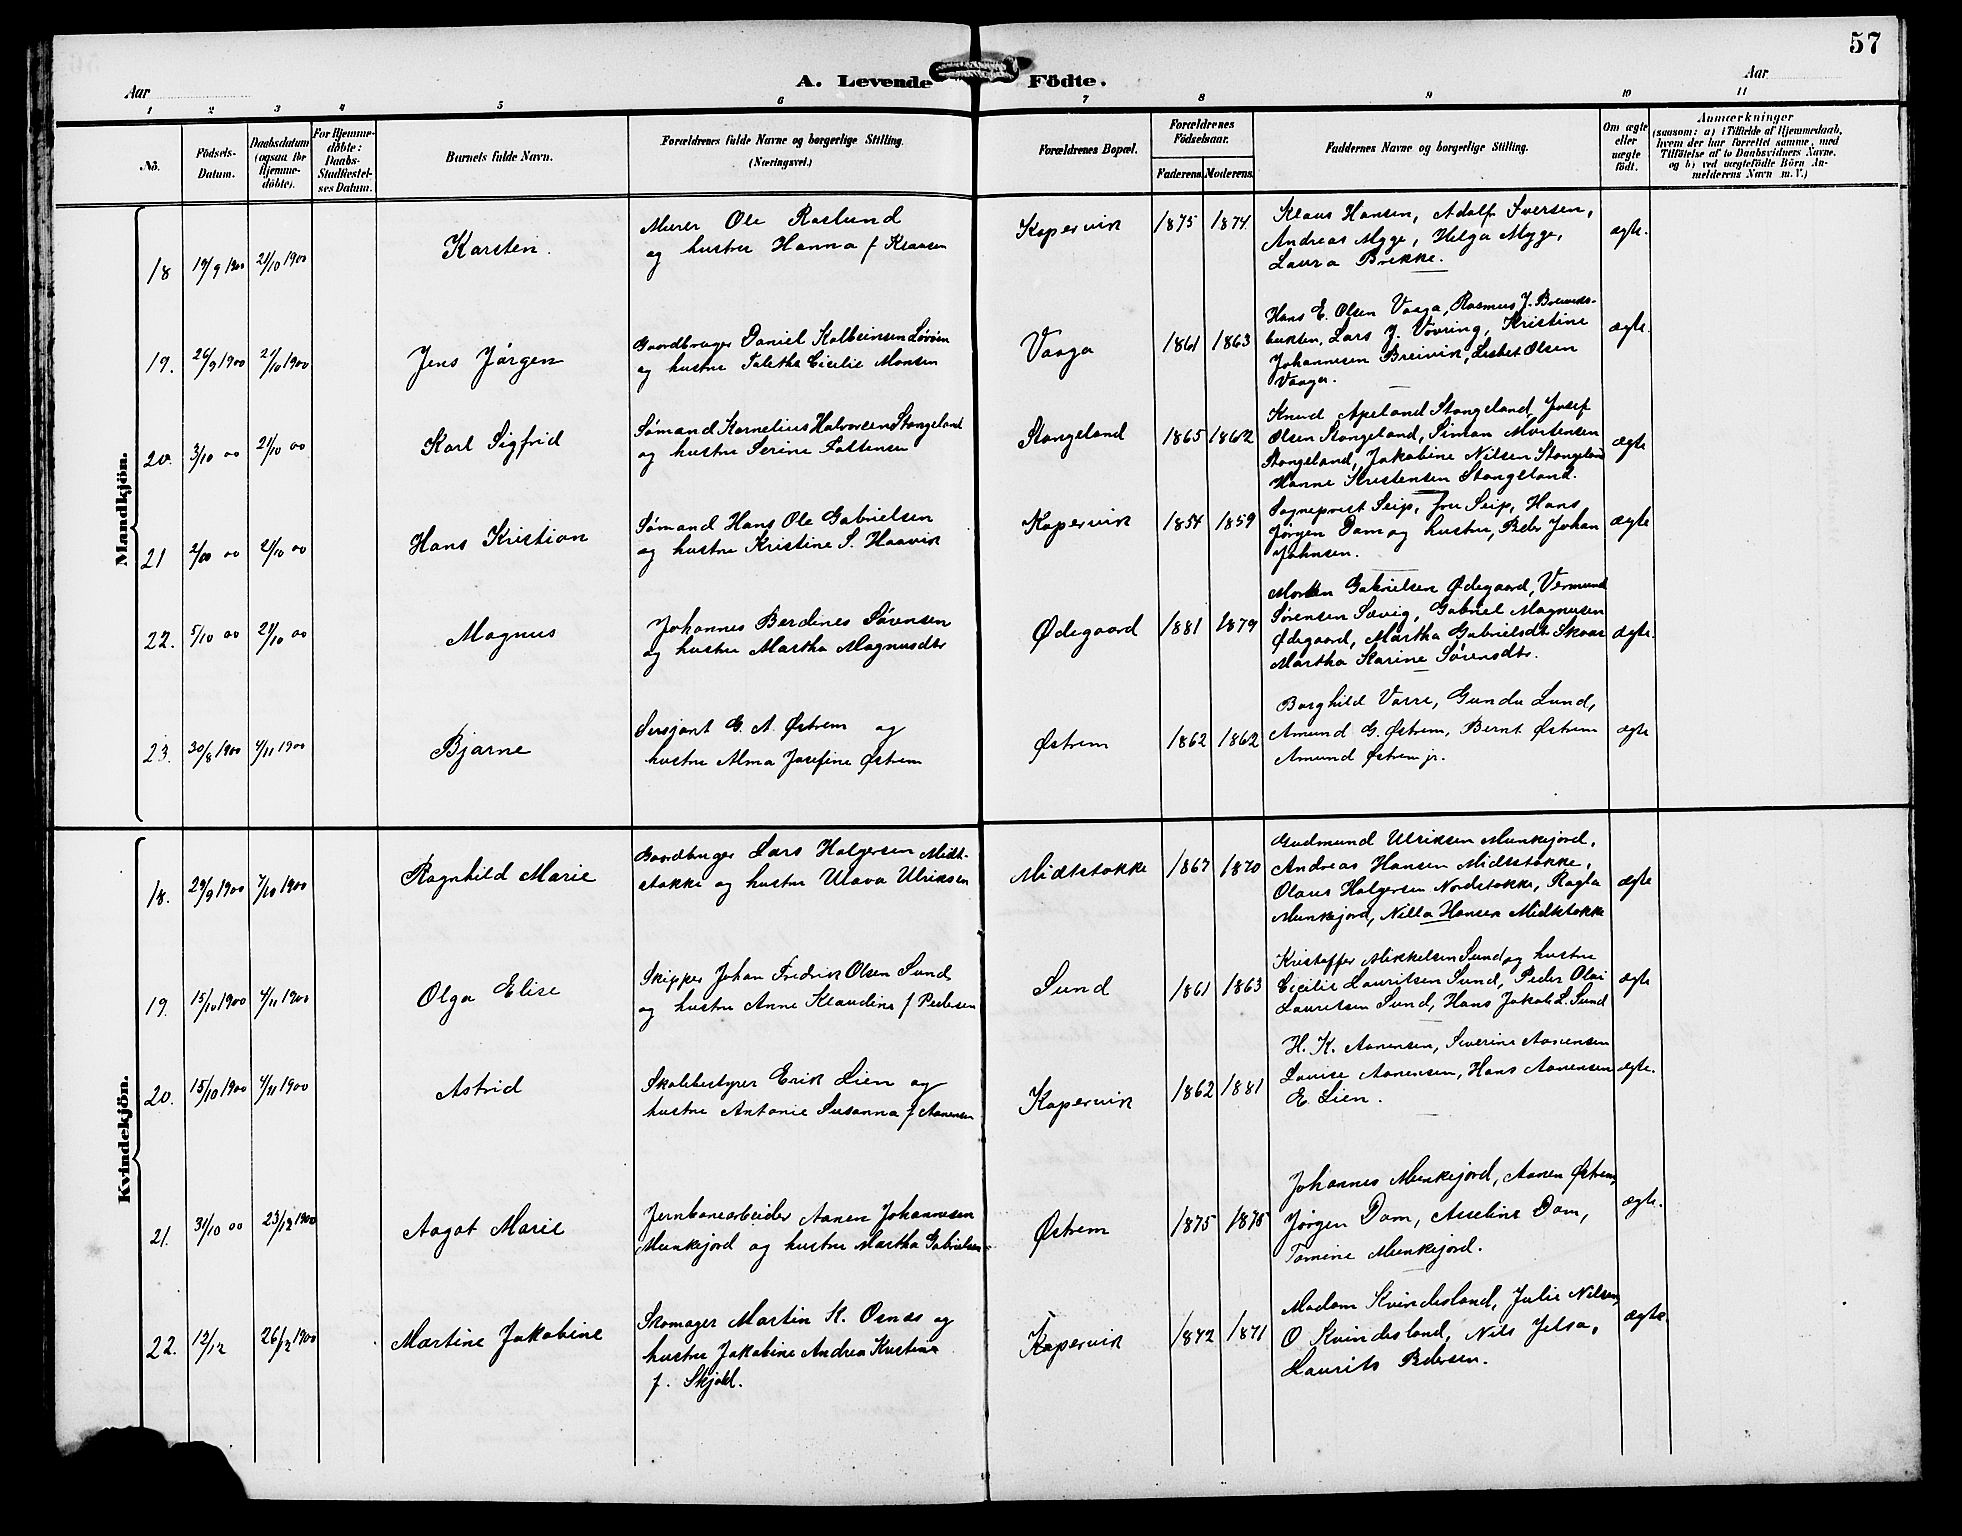 57
A. Levende Födte.
Aar
Aar
1 2 3 4 5 6 7 8 9 10 11
Nö.
Födsels-
Datum.
Daabsdatum
(ogsaa for
Hjemme-
döbte).
For Hjemme-
döbte:
Daabs-
Stadfæstel-
ses Datum.
Barnets fulde Navn.
Forældrenes fulde Navne og borgerlige Stilling.
(Næringsvei.)
Forældrenes Bopæl.
Forældrenes
Födselsaar.
Faderens. Moderens.
Faddernes Navne og borgerlige Stilling.
Om ægte
eller
uægte
födt.
Anmærkninger
(saasom: a) i Tilfælde af Hjemmedaab,
hvem der har forrettet samme, med
Tilföielse af to Daabsvidners Navne,
og b) ved uægtefödte Börn An-
melderens Navn m. V.)
Mandkjön.
18 19/9 1900 21/10 1900 Karsten.
Murer Ole Roslund
og hustru Hanna f Klausen
Kopervik 1875 1874
Klaus Hansen, Adolf Iversen,
Andreas Myge, Helga Myge,
Laura Brekke.
ægte.
19. 26/9 1900 21/10 1900 Jens Jørgen
Gaardbruger Daniel Kolbeinsen
og hustru Taletha Cicilie Monsen
Vaaga 1861 1863
Hans E. Olsen Vaaga, Rasmus J.
Lars J. Vovring, Kristine
Johannesen Breivik, Lisbet Olsen
Vaaga.
ægte.
20. 3/10 00 21/10 00 Karl Sigfrid
Sømand Kornelius Halvorsen Stangeland
og hustru Serine
Stangeland 1865 1862
Knud Apeland Stangeland, Josef
Olsen Stangeland, Simon Mortensen
Stangeland, Jakobine Nilsen Stangeland
Hanne Kristensen Stangeland.
ægte
21 00 21/10 00 Hans Kristian
Sømand Hans Ole Gabrielsen
og hustru Kristine S. Haavik
Kopervik 1854 1859
Sogneprest Seip, fru Seip, Hans
Jørgen Dam og hustru, Peder Johan
Johnsen.
ægte
22. 5/10 00 21/10 00 Magnus
Johannes Berdines Sørensen
og hustru Martha Magnusdtr
Ødegaard 1881 1879
Morten Gabrielsen Ødegaard, Vermund
Sørensen Sævig, Gabriel Magnusen
Ødegaard, Martha Gabrielsdtr Skaar
Martha Karine Sørensdtr.
ægte.
23. 30/8 1900 4/11 1900 Bjarne
Sersjant G. A. Østrem og
hustru Alma Josefine Østrem
Østrem 1862 1862
Borghild Varre, Gunda Lund,
Amund G. Østrem, Bernt Østrem
Amund Østrem jr.
ægte
Kvindekjön.
18. 29/9 1900 7/10 1900 Ragnhild Marie
Gaardbruger Lars Holgersen Midt-
stokke og hustru Ulava Ulriksen
Midtstokke 1867 1870
Gudmund Ulriksen Munkejord,
Andreas Hansen Midtstokke,
Olaus Holgersen Nordstokke, Ragla
Munkejord, Nilla Hansen Midtstokke
ægte
19. 15/10 1900 4/11 1900 Olga Elise
Skipper Johan Fredrik Olsen Sund
og hustru Anne Klaudine f Pedersen
Sund 1861 1863
Kristoffer Mikkelsen Sund og hustru
Cicilie Lauritsen Sund, Peder Olai
Lauritsen Sund, Hans Jakob L. Sund
ægte
20. 15/10 1900 4/11 1900 Astrid
Skolebestyrer Erik Lien og
hustru Antonie Susanna f Aanensen
Kopervik 1862 1881
H. K. Aanensen, Severine Aanensen
Louise Aanensen, Hans Aanensen
E. Lien.
ægte.
21. 31/10 00 23/12 1900 Aagot Marie
Jernbanearbeider Aanen Johannesen
Munkejord og hustru Martha Gabrielsen
Østrem 1875 1875
Johannes Munkejord, Aanen Østrem,
Jørgen Dam, Asseline Dam,
Tomine Munkejord.
ægte.
22. 12/12 26/12 1900 Martine Jakobine
Skomager Martin K. Osnes og
hustru Jakobine Andrea Kristine
f. Skjold.
Kopervik 1872 1871
Madam Kvindesland, Julie Nilsen,
O Kvindesland, Nils Jelsa,
Laurits Pedersen.
ægte